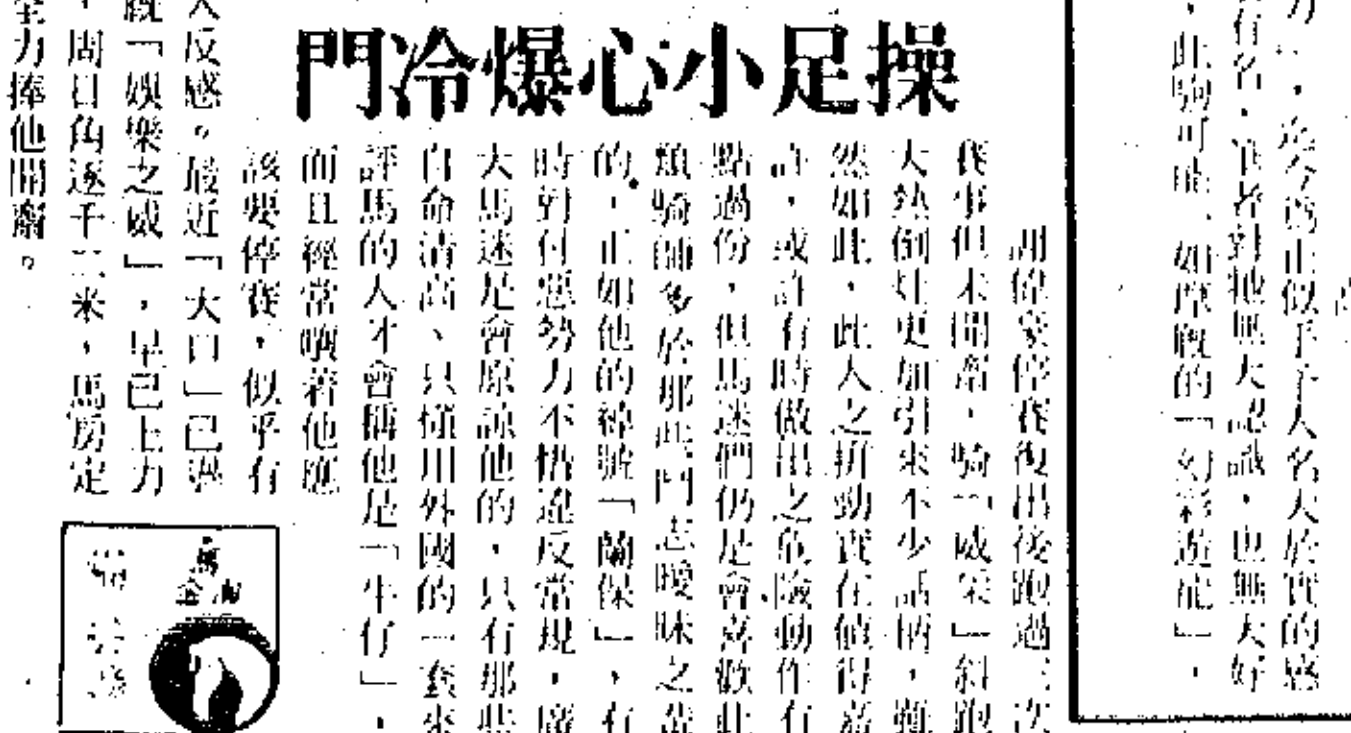 力」，迄今爲止似乎予人名大於實的感
有名，筆者對牠無大認識，也無大好
，此駒可能、如摩廐的「幻彩遊龍」，
操足小心爆冷門
謝偉豪停賽復出後跑過三次
賽事但未開齋，騎「威采」斜跑
大熱倒灶更加引來不少話柄，雖
然如此，此人之拼勁實在值得嘉
許，或許有時做出之危險動作有
點過份，但馬迷們仍是會喜歡此
類騎師多於那些鬥志曖昧之輩
的，正如他的綽號「蘭保」，有
時對付惡勢力不惜違反常規，廣
大馬迷是會原諒他的，只有那些
自命清高、只懂用外國的一套來
評馬的人才會稱他是「牛仔」，
而且經常嚷著他應
該要停賽，似乎有
人反感。最近「大口」已
廐「娛樂之威」，早已上力
，周日角逐千二米，馬房定
全力捧他開齋。